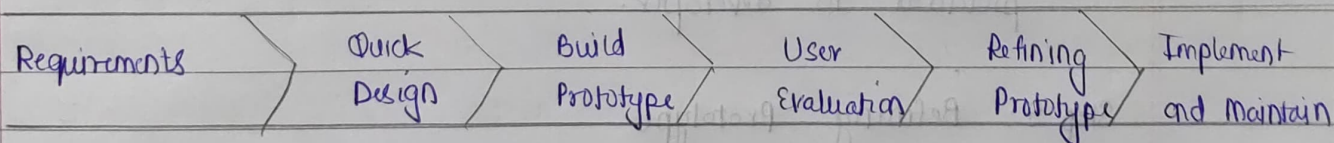 Requirements
Quick
Design
Build
Prototype
User
Evaluation
Refining
Prototype
Implement
and Maintain